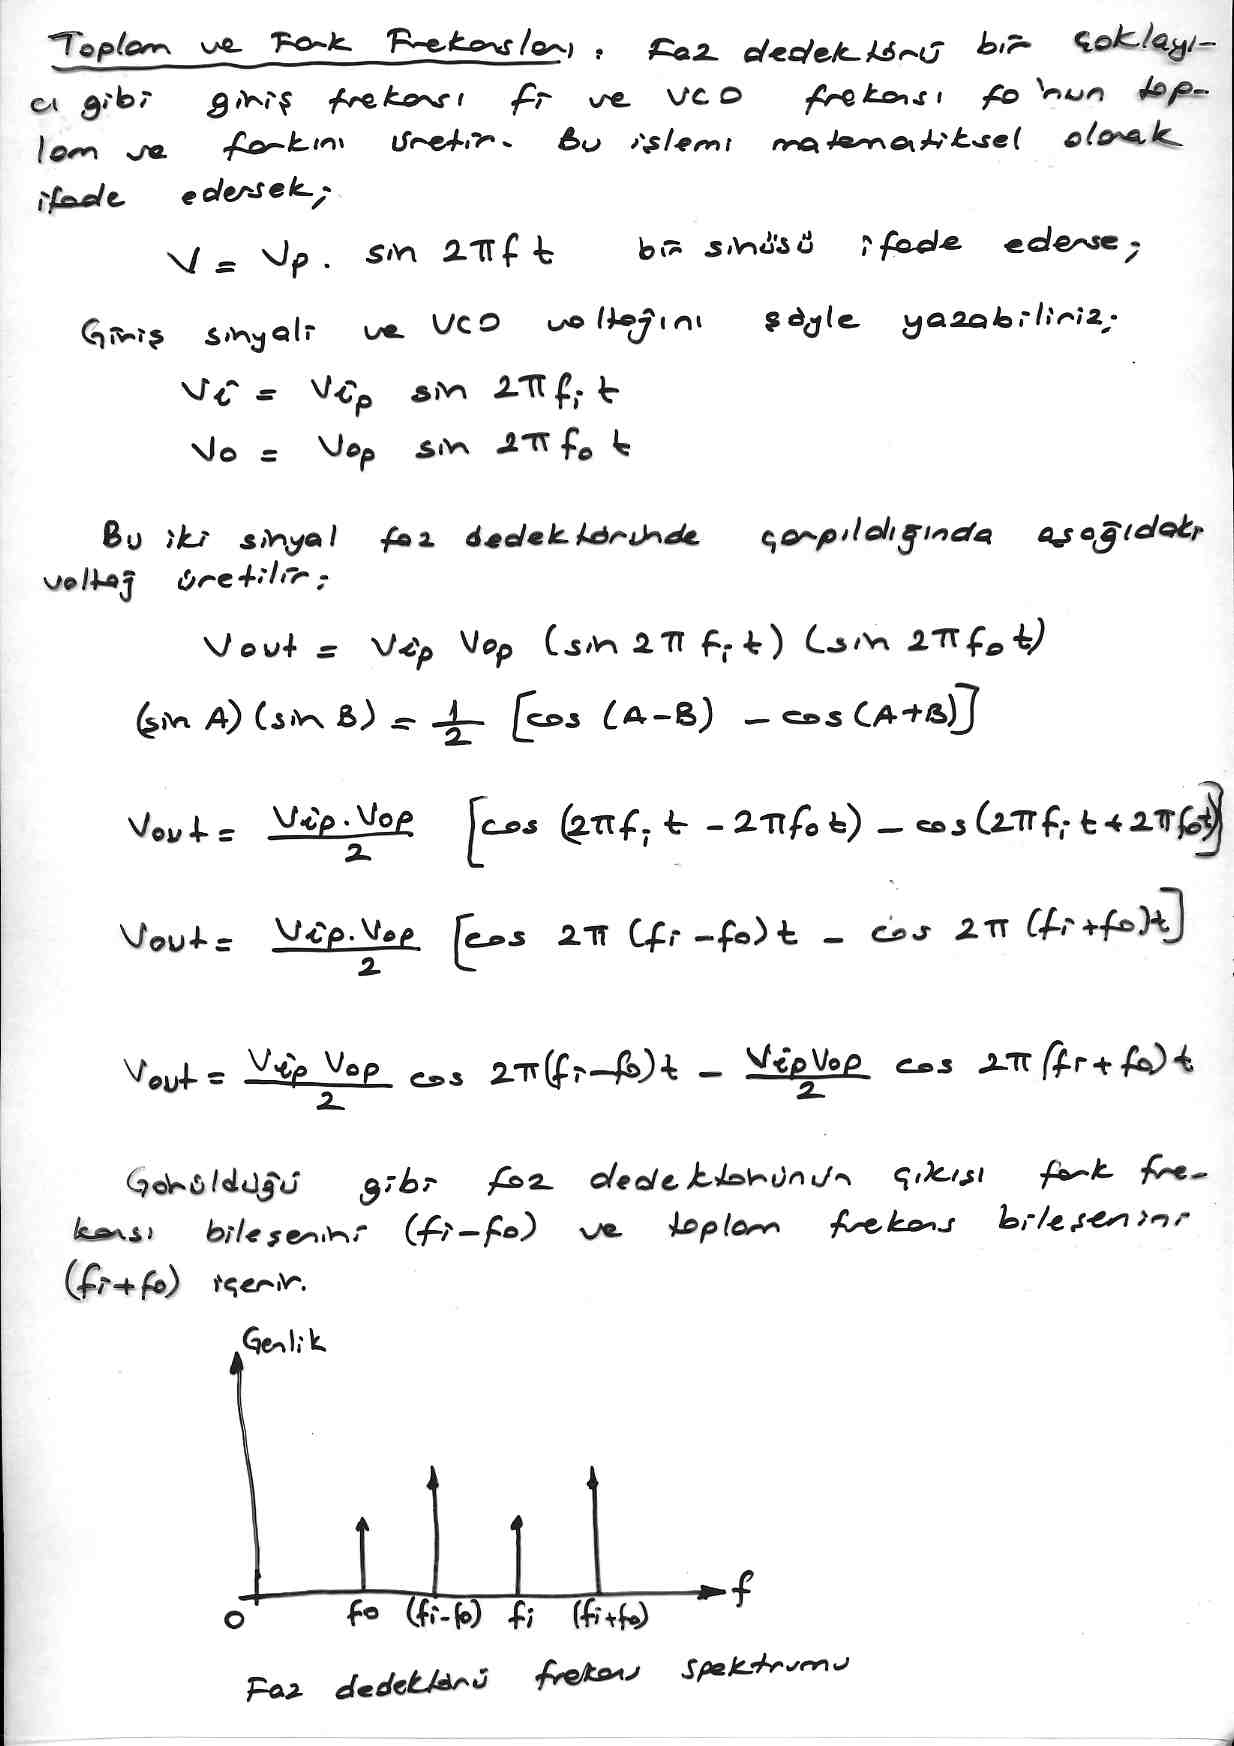 Toplam ve Fark Frekansları : Faz dedektörü bir çoklayı-
cı gibi giriş frekansı fi ve VCO frekansı fo'nun top-
lam ve farkını üretir. Bu işlemi matematiksel olarak
ifade edersek;
V = Vp . sin 2πft bir sinüsü ifade ederse;
Giriş sinyali ve VCO voltağını şöyle yazabiliriz;
Vi = Vip sin 2πfi t
Vo = Vop sin 2πfo t
Bu iki sinyal faz dedektöründe çarpıldığında aşağıdaki
voltağ üretilir;
Vout = Vip Vop (sin 2π fi t) (sin 2π fo t)
(sin A) (sin B) = 1/2 [cos (A-B) - cos (A+B)]
Vout = Vip.Vop/2 [cos (2πfi t - 2πfo t) - cos (2πfi t + 2πfot)]
Vout = Vip.Vop/2 [cos 2π (fi - fo) t - cos 2π (fi + fo)t]
Vout = Vip Vop/2 cos 2π(fi-fo)t - Vip Vop/2 cos 2π (fi + fo) t
Görüldüğü gibi faz dedektörünün çıkışı fark fre-
kansı bileşenini (fi-fo) ve toplam frekans bileşenini
(fi+fo) içerir.
Genlik
0 fo (fi-fo) fi (fi+fo) f
Faz dedektörü frekans spektrumu